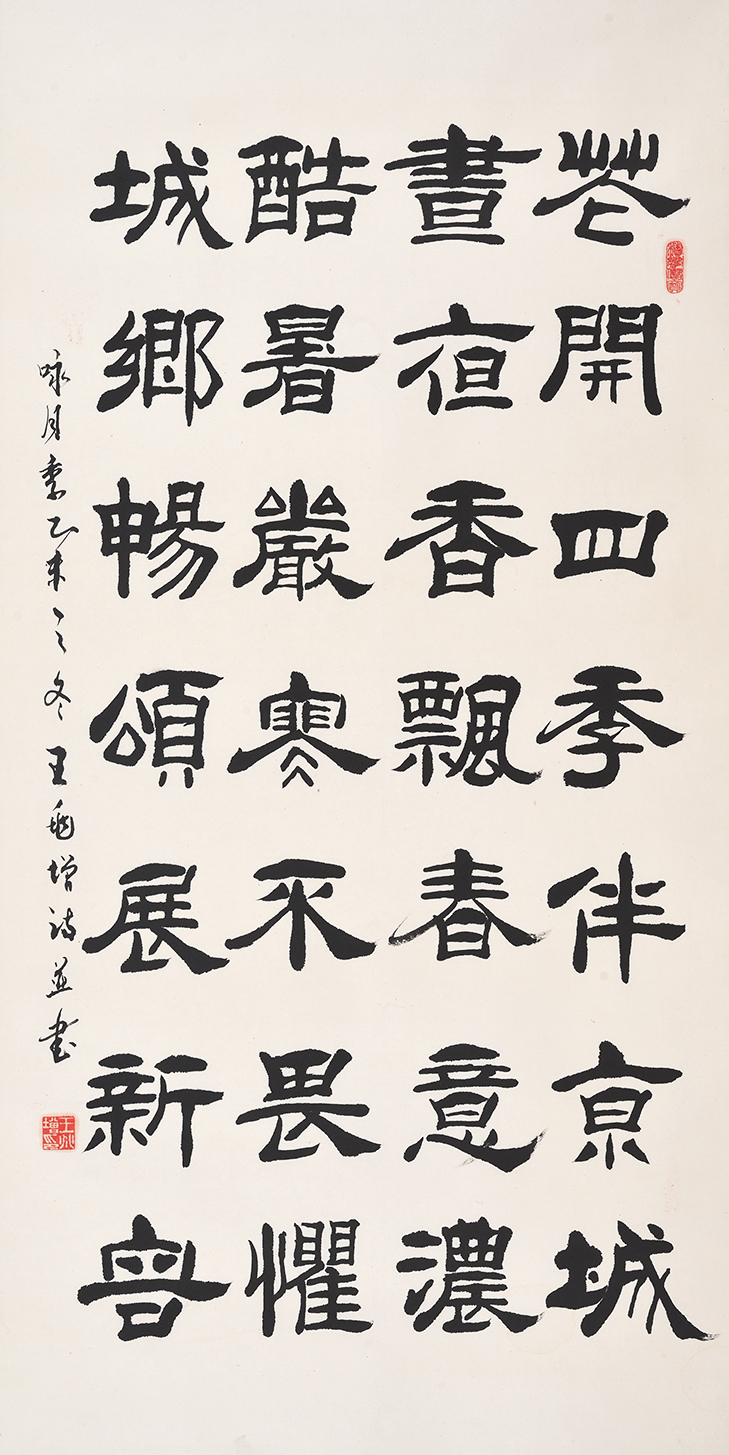 花開四季伴京城
晝夜香飄春意濃
酷暑嚴寒不畏懼
城鄉暢頌展新容
咏月季乙未之冬王兆增詩並書
王兆增印